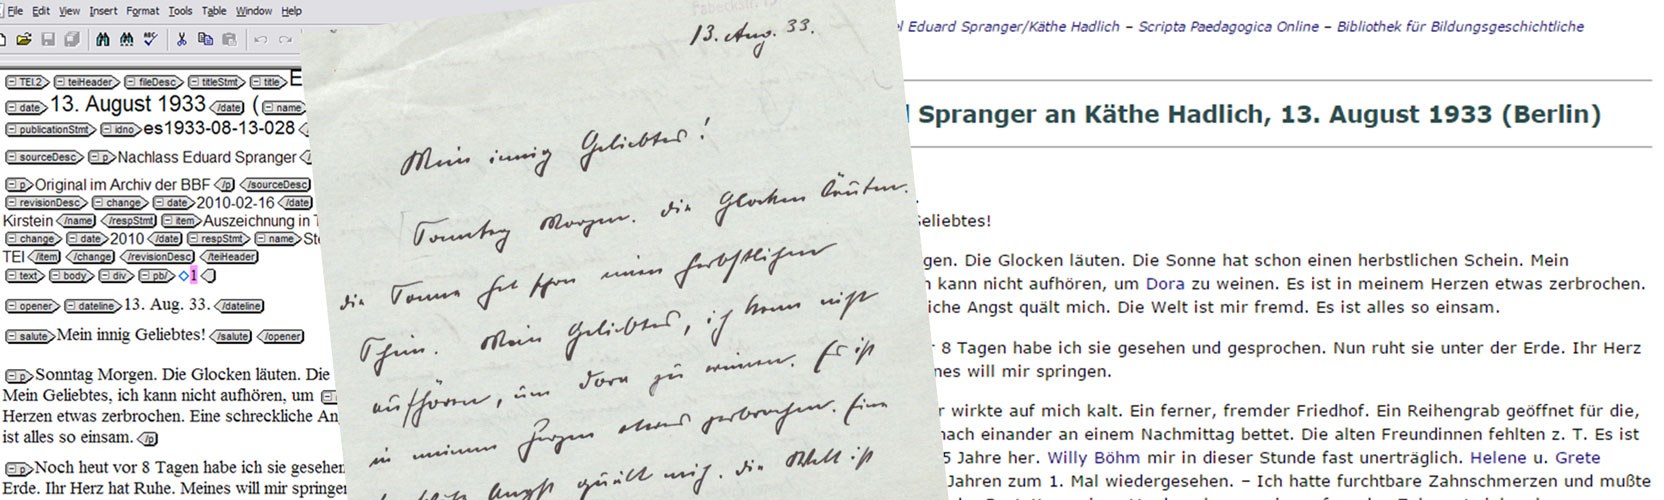 File Edit View Insert Format Tools Table Window Help
TEI.2 teiHeader fileDesc titleStmt title E
date 13. August 1933 /date ( name
publicationStmt idno es1933-08-13-028
sourceDesc p Nachlass Eduard Spranger
p Original im Archiv der BBF /p /sourceDesc
revisionDesc change date 2010-02-16 /date
Kirstein /name /respStmt item Auszeichnung in T
change date 2010 /date respStmt name Ste
TEI /item /change /revisionDesc /teiHeader
text body div pb/ 1
opener dateline 13. Aug. 33. /dateline
salute Mein innig Geliebtes! /salute /opener
p Sonntag Morgen. Die Glocken läuten. Die
Mein Geliebtes, ich kann nicht aufhören, um
Herzen etwas zerbrochen. Eine schreckliche An
ist alles so einsam. /p
p Noch heut vor 8 Tagen habe ich sie gesehen
Erde. Ihr Herz hat Ruhe. Meines will mir springen
13. Aug. 33.
Mein innig Geliebtes!
Sonntag Morgen. Die Glocken läuten.
Die Sonne hat schon einen herbstlichen
Schein. Mein Geliebtes, ich kann nicht
aufhören, um Dora zu weinen. Es ist
in meinem Herzen etwas zerbrochen. Eine
Angst quält mich. Die Welt ist
el Eduard Spranger/Käthe Hadlich – Scripta Paedagogica Online – Bibliothek für Bildungsgeschichtliche
Spranger an Käthe Hadlich, 13. August 1933 (Berlin)
Geliebtes!
gen. Die Glocken läuten. Die Sonne hat schon einen herbstlichen Schein. Mein
h kann nicht aufhören, um Dora zu weinen. Es ist in meinem Herzen etwas zerbrochen.
liche Angst quält mich. Die Welt ist mir fremd. Es ist alles so einsam.
r 8 Tagen habe ich sie gesehen und gesprochen. Nun ruht sie unter der Erde. Ihr Herz
nes will mir springen.
r wirkte auf mich kalt. Ein ferner, fremder Friedhof. Ein Reihengrab geöffnet für die,
nach einander an einem Nachmittag bettet. Die alten Freundinnen fehlten z. T. Es ist
5 Jahre her. Willy Böhm mir in dieser Stunde fast unerträglich. Helene u. Grete
Jahren zum 1. Mal wiedergesehen. – Ich hatte furchtbare Zahnschmerzen und mußte